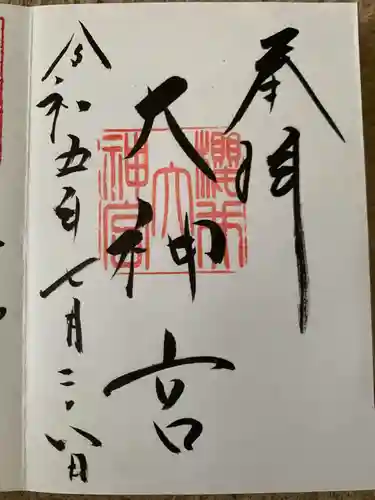 奉拝
大神宮
令和五年七月二十八日